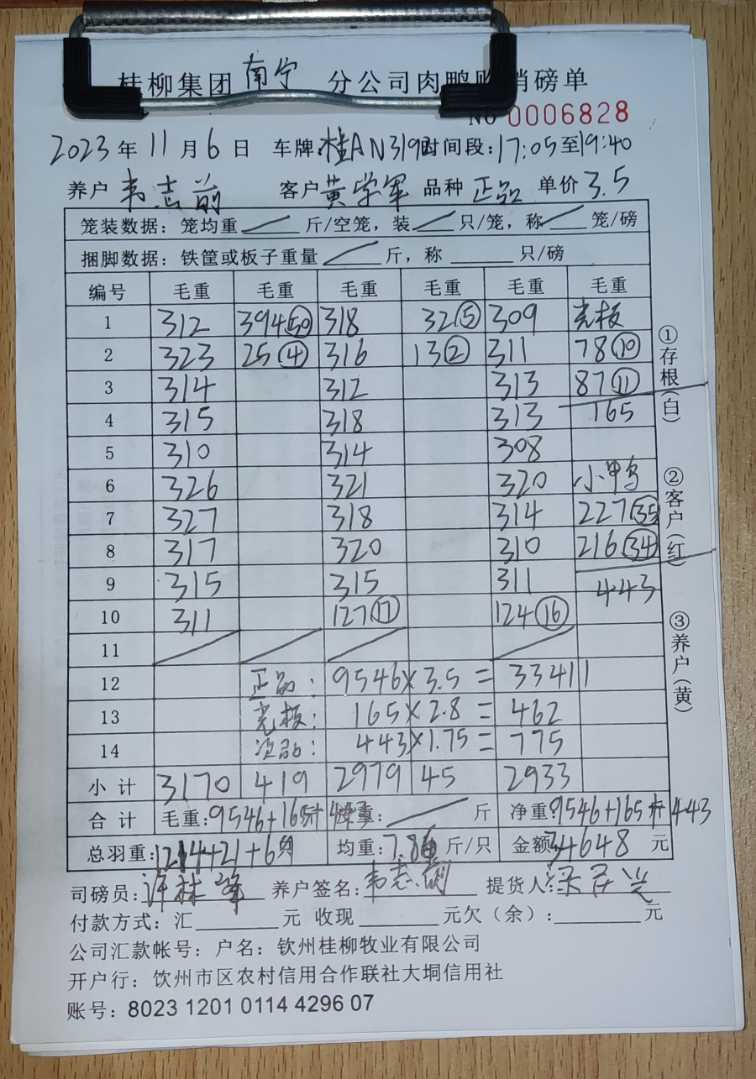 桂柳集团 南宁 分公司肉鸭购销磅单
No 0006828
2023 年 11 月 6 日 车牌:桂AN319 时间段:17:05至19:40
养户 韦志前 客户 黄学军 品种 正品 单价 3.5
笼装数据: 笼均重 斤/空笼, 装 只/笼, 称 笼/磅
捆脚数据: 铁筐或板子重量 斤, 称 只/磅
编号 毛重 毛重 毛重 毛重 毛重 毛重
1 312 394(50) 318 32(5) 309 光板
2 323 25(4) 316 13(2) 311 78(10)
3 314 312 313 87(11)
4 315 318 313 165
5 310 314 308
6 326 321 320 小鸭
7 327 318 314 227(35)
8 317 320 310 216(34)
9 315 315 311 443
10 311 127(17) 124(16)
11
12 正品: 9546×3.5= 33411
13 光板: 165×2.8= 462
14 次品: 443×1.75= 775
小计 3170 419 2979 45 2933
合计 毛重:9546+165+ 斤 净重:9546+165+443
总羽重:1214+21+69 均重:7.8 斤/只 金额:34648 元
司磅员: 许林峰 养户签名: 韦志前 提货人:
付款方式: 汇 元 收现 元欠(余): 元
公司汇款帐号: 户名: 钦州桂柳牧业有限公司
开户行: 钦州市区农村信用合作联社大垌信用社
账号: 8023 1201 0114 4296 07
①存根(白)
②客户(红)
③养户(黄)